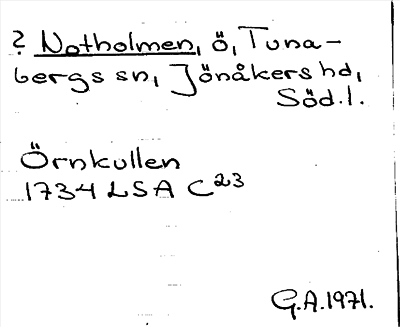 ? Notholmen, ö, Tuna-
bergs sn, Jönåkers hd,
Söd.l.
Örnkullen
1734 LSA C23
G.A.1971.